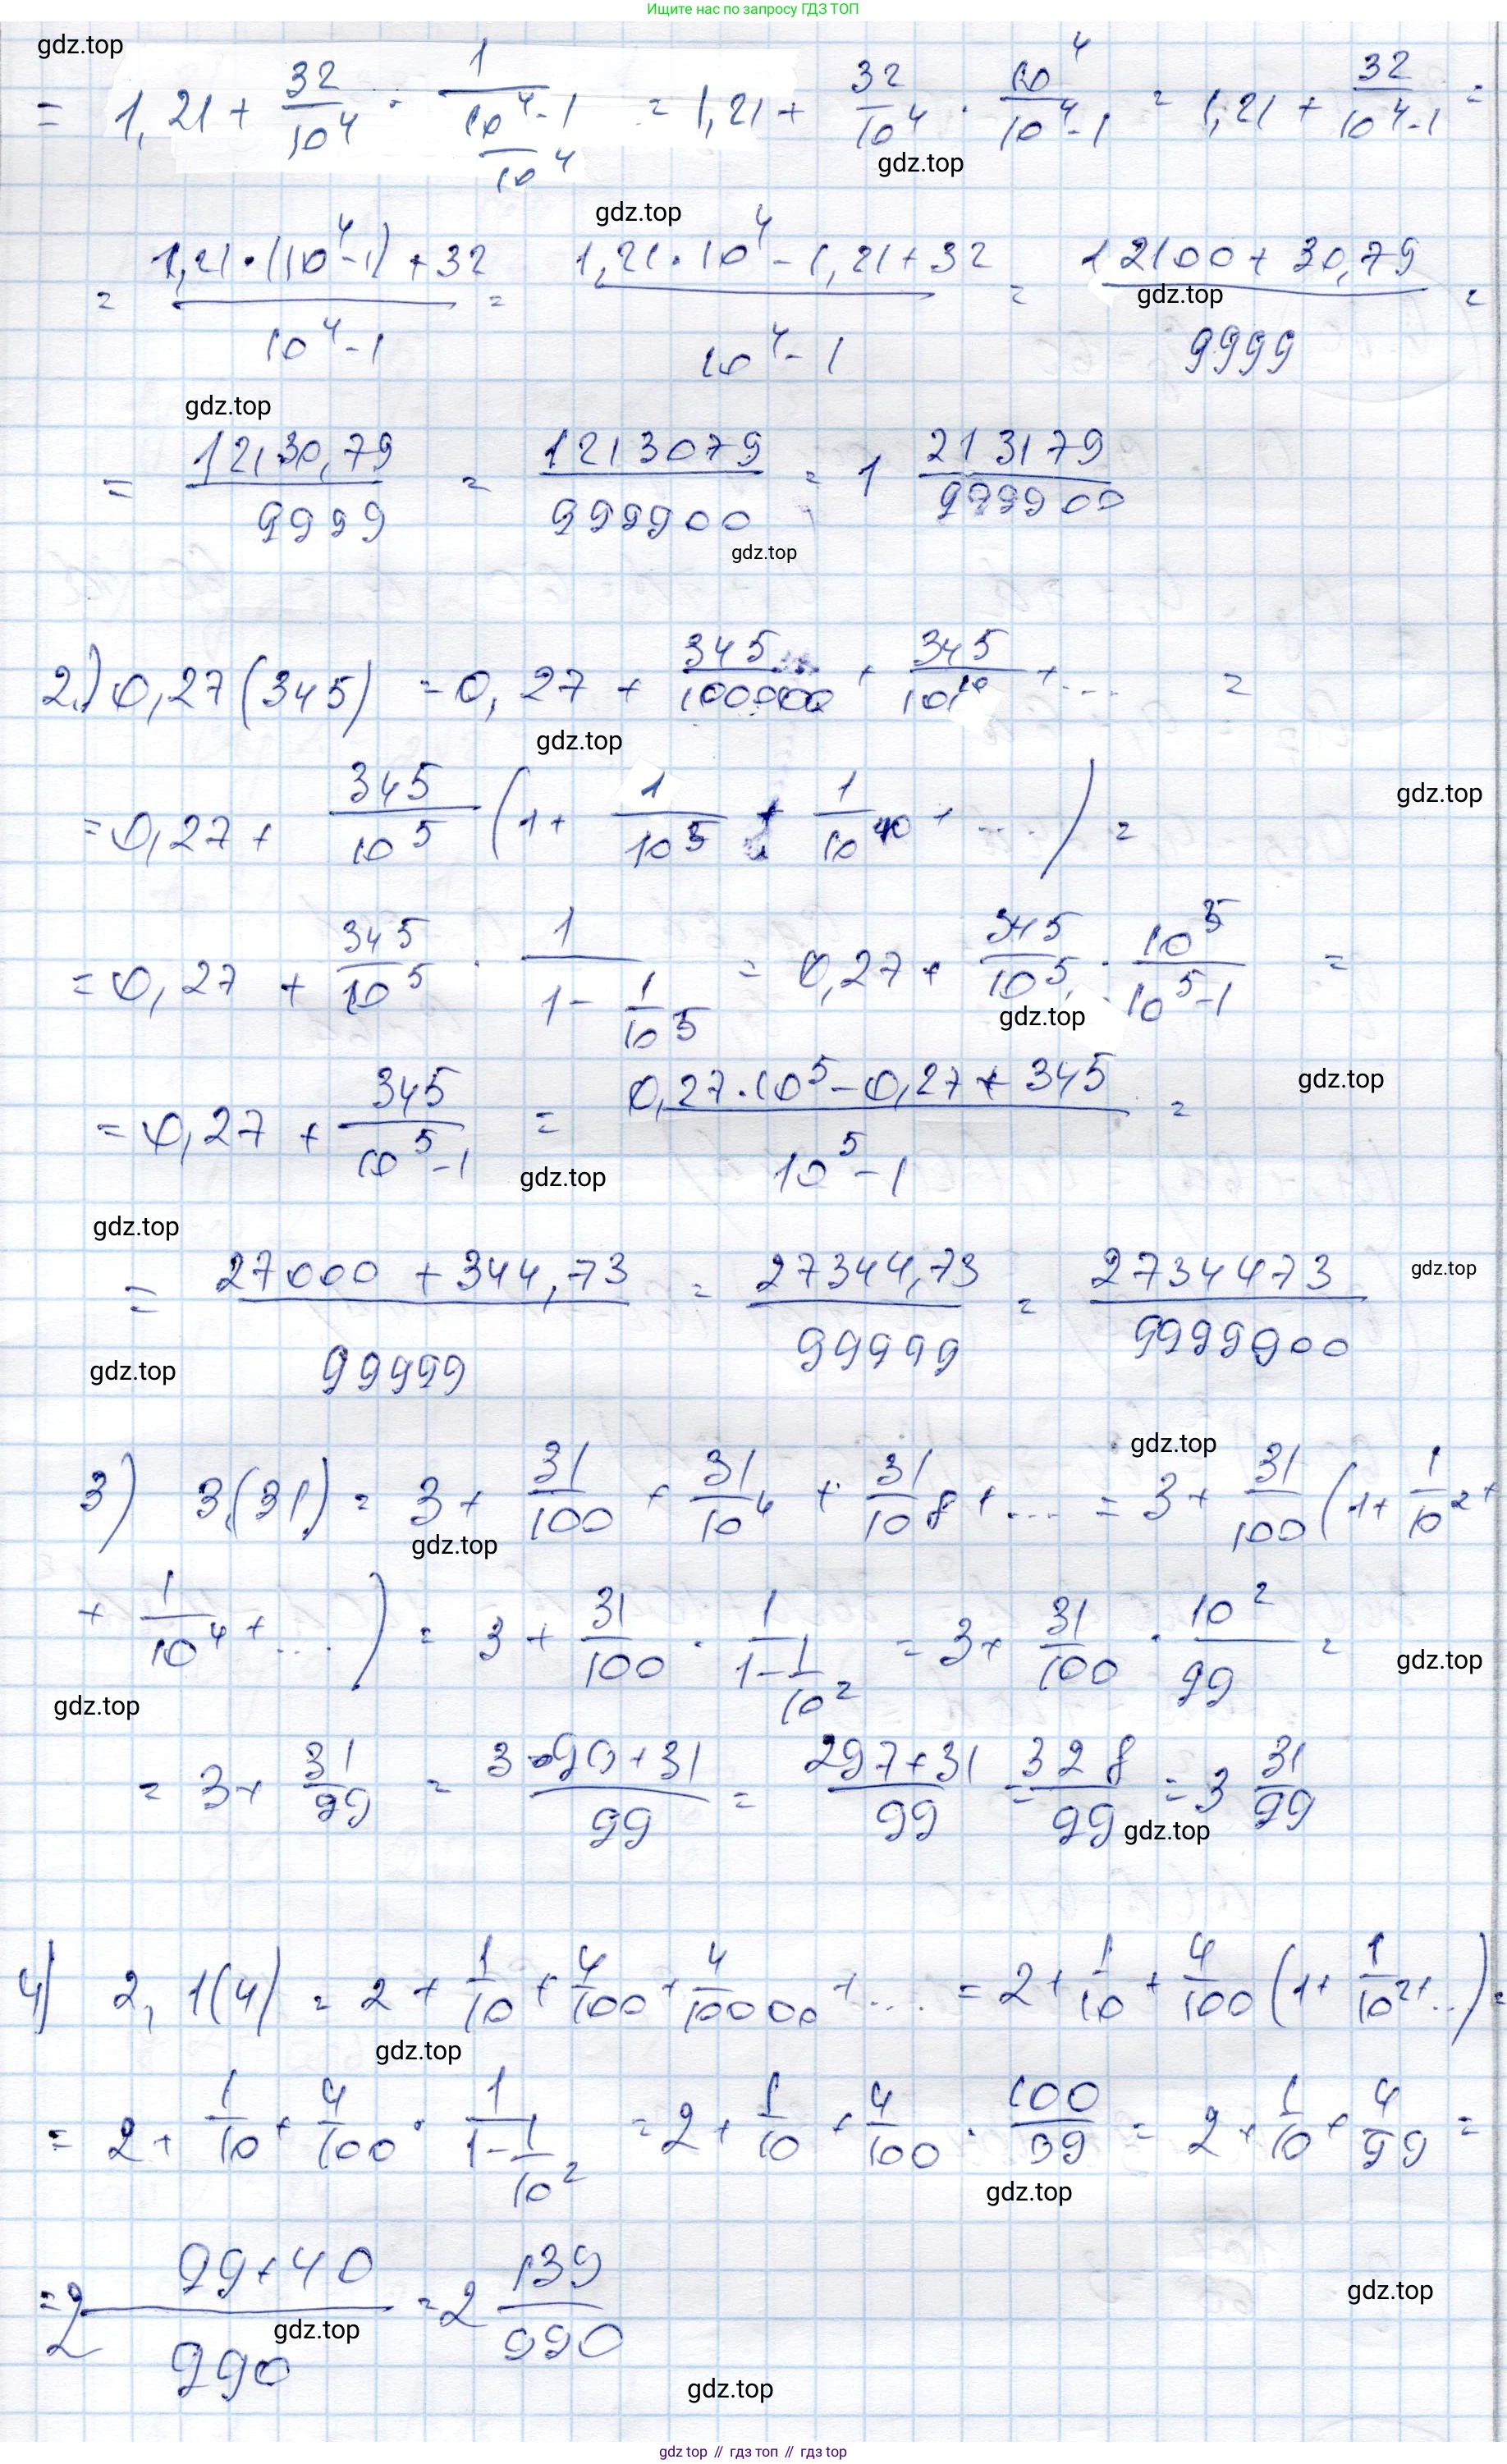 Ищите нас по запросу ГДЗ ТОП
gdz.top
= 1,21 + 32/10^4 · 1/((10^4-1)/10^4) = 1,21 + 32/10^4 · 10^4/(10^4-1) = 1,21 + 32/(10^4-1) =
gdz.top
gdz.top
= (1,21·(10^4-1)+32)/(10^4-1) = (1,21·10^4-1,21+32)/(10^4-1) = (12100+30,79)/9999 =
gdz.top
gdz.top
= 12130,79/9999 = 1213079/999900 = 1 213179/999900
gdz.top
2.) 0,27(345) = 0,27 + 345/100000 + 345/10^10 + ... =
gdz.top
= 0,27 + 345/10^5 (1 + 1/10^5 + 1/10^10 + ...) =
gdz.top
= 0,27 + 345/10^5 · 1/(1 - 1/10^5) = 0,27 + 345/10^5 · 10^5/(10^5-1) =
gdz.top
= 0,27 + 345/(10^5-1) = (0,27·10^5-0,27+345)/(10^5-1) =
gdz.top
gdz.top
gdz.top
= (27000+344,73)/99999 = 27344,73/99999 = 2734473/9999900
gdz.top
gdz.top
gdz.top
3) 3,(31) = 3 + 31/100 + 31/10^4 + 31/10^8 + ... = 3 + 31/100 (1 + 1/10^2 +
gdz.top
+ 1/10^4 + ...) = 3 + 31/100 · 1/(1 - 1/10^2) = 3 + 31/100 · 10^2/99 =
gdz.top
gdz.top
= 3 + 31/99 = (3·99+31)/99 = (297+31)/99 = 328/99 = 3 31/99
gdz.top
4) 2,1(4) = 2 + 1/10 + 4/100 + 4/10000 + ... = 2 + 1/10 + 4/100 (1 + 1/10^2 + ...) =
gdz.top
= 2 + 1/10 + 4/100 · 1/(1 - 1/10^2) = 2 + 1/10 + 4/100 · 100/99 = 2 + 1/10 + 4/99 =
gdz.top
= 2 (99+40)/990 = 2 139/990
gdz.top
gdz.top
gdz.top
gdz top // гдз топ // gdz top